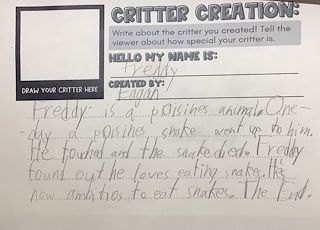 CRITTER CREATION:
Write about the critter you created! Tell the
viewer about how special your critter is.
HELLO MY NAME IS:
Freddy
CREATED BY:
DRAW YOUR CRITTER HERE
Freddy is a poisihes animal. One
day a poisihes snake went up to him.
He touched and the snake died. Freddy
found out he loves eating snakes. He's
now ambitios to eat snakes. The End.